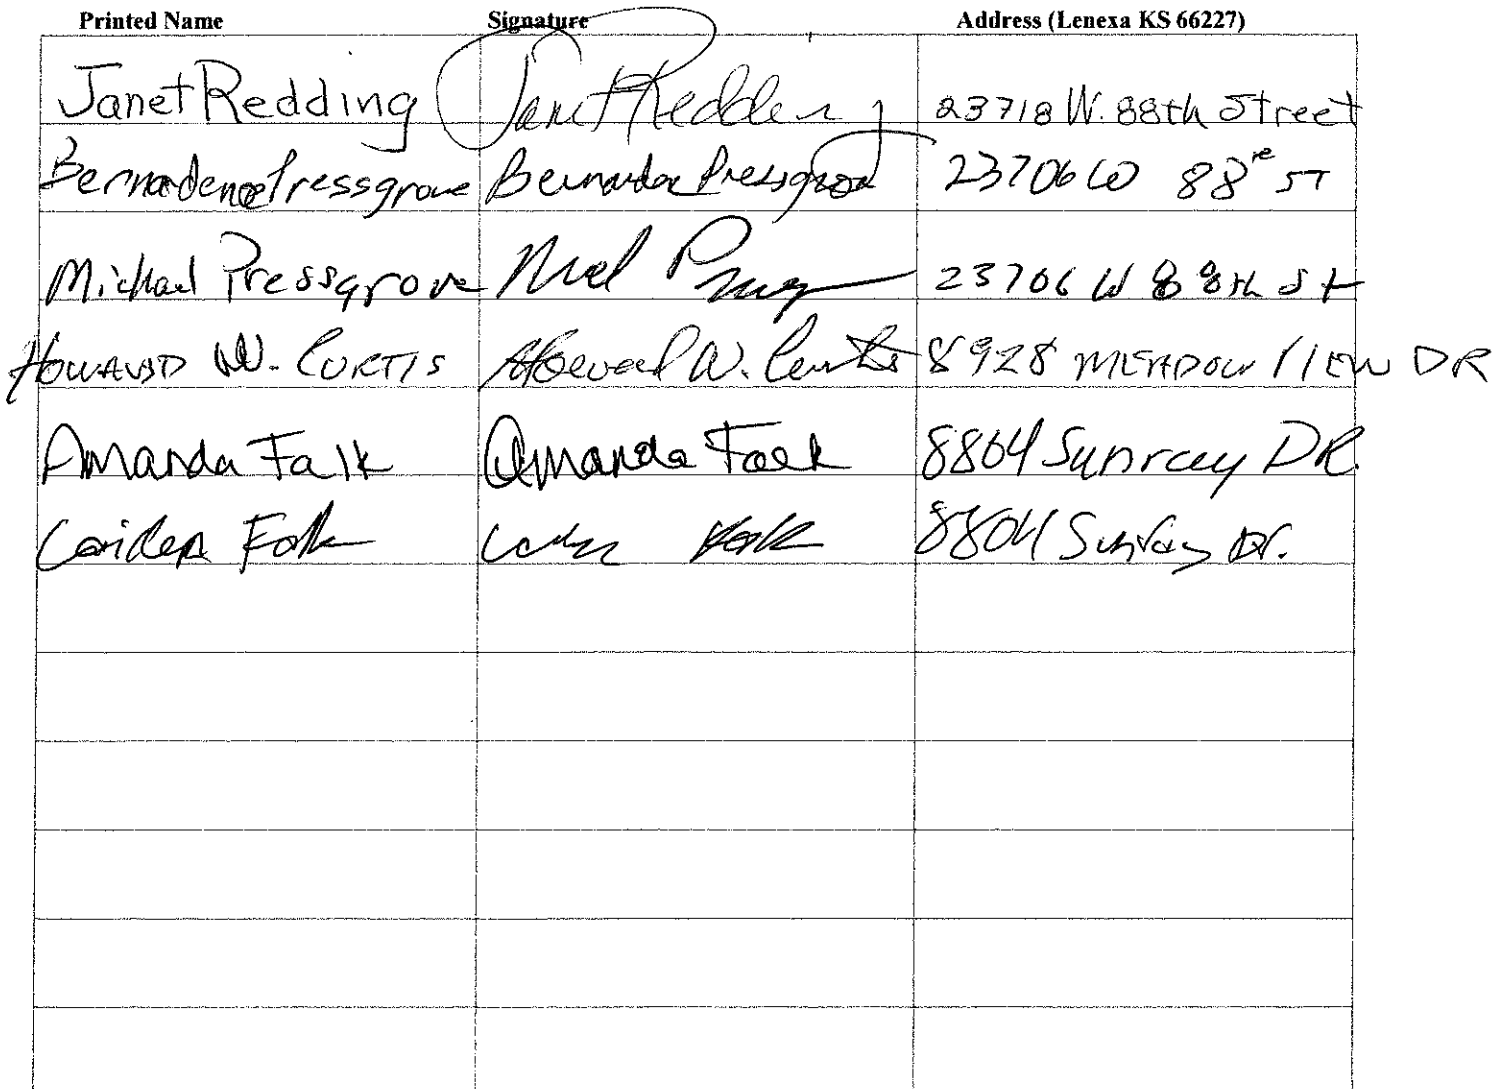 Printed Name Signature Address (Lenexa KS 66227)
Janet Redding Janet Redding 23718 W. 88th Street
Bernadene Pressgrove Bernadene Pressgrove 23706 W 88 ST
Michael Pressgrove 23706 W 88th St
HOWARD W. CURTIS Howard W. Curtis 8928 MEADOW VIEW DR
Amanda Falk Amanda Falk 8804 Sunray DR.
Caiden Falk Falk 8804 Sunray Dr.